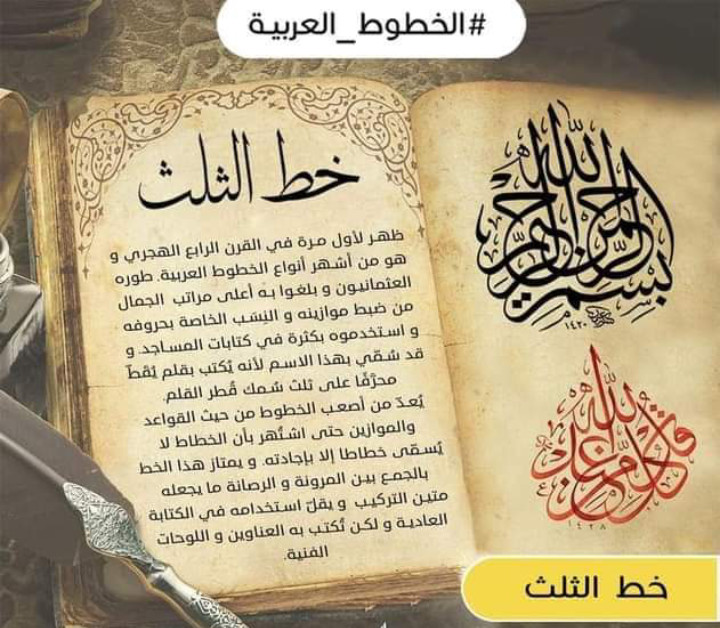 #الخطوط_العربية
خط الثلث
ظهر لأول مرة في القرن الرابع الهجري و
هو من أشهر أنواع الخطوط العربية. طوره
العثمانيون و بلغوا به أعلى مراتب الجمال
من ضبط موازينه و النِسَب الخاصة بحروفه
و استخدموه بكثرة في كتابات المساجد. و
قد سُمّي بهذا الاسم لأنه يُكتب بقلم يُقطّ
محرَّفًا على ثلث سُمك قُطر القلم.
يُعدّ من أصعب الخطوط من حيث القواعد
والموازين حتى اشتُهر بأن الخطاط لا
يُسمّى خطاطا إلا بإجادته. و يمتاز هذا الخط
بالجمع بين المرونة و الرصانة ما يجعله
متين التركيب و يقلّ استخدامه في الكتابة
العادية و لكن تُكتب به العناوين و اللوحات
الفنية.
بسم الله الرحمن الرحيم
١٤٢٠
١٤٢٨
خط الثلث